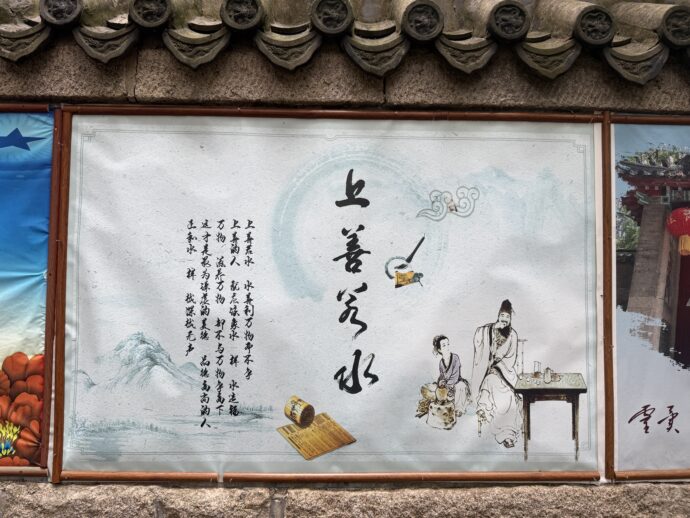 上善若水
上善若水 水善利万物而不争
上善的人 就应该象水一样 水造福
万物 滋养万物 却不与万物争高下
这才是最为谦虚的美德 品德高尚的人
水一样 无声